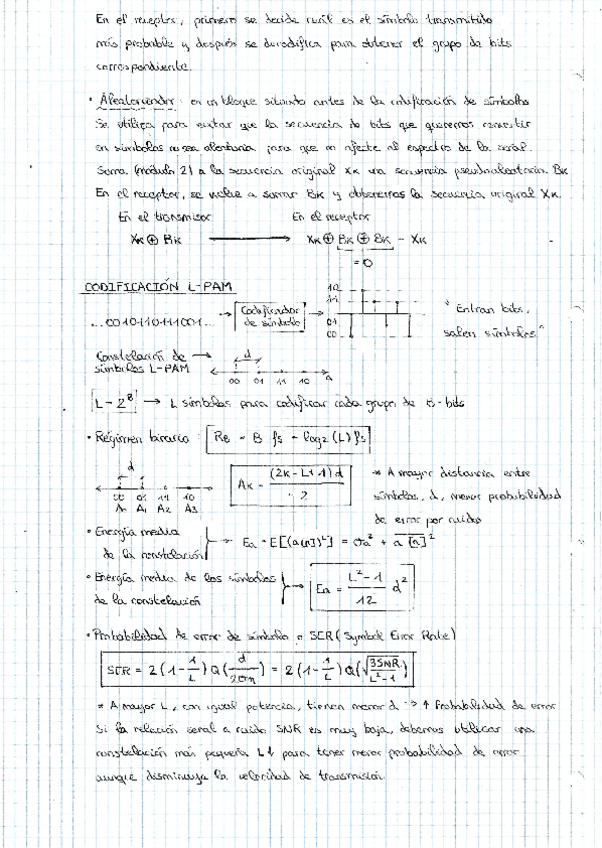 En el receptor, primero se decide cuál es el símbolo transmitido
más probable y después se decodifica para obtener el grupo de bits
correspondiente.
• Aleatorizador: es un bloque situado antes de la codificación de símbolos
Se utiliza para evitar que la secuencia de bits que queremos convertir
en símbolos no sea aleatoria para que no afecte al espectro de la señal.
Suma (módulo 2) a la secuencia original XK una secuencia pseudoaleatoria BK
En el receptor, se vuelve a sumar BK y obtenemos la secuencia original XK.
En el transmisor En el receptor
XK ⊕ BK → XK ⊕ BK ⊕ BK = XK
= 0
CODIFICACIÓN L-PAM
10
11
...0010110111001... → Codificador de símbolo → 01 "Entran bits,
00 salen símbolos"
Constelación de → d
símbolos L-PAM 00 01 11 10 a
L = 2^B → L símbolos para codificar cada grupo de B-bits
• Régimen binario: RB = B fs = log2(L) fs
d
00 01 11 10
A0 A1 A2 A3
AK = (2K-L+1)d / 2
* A mayor distancia entre
símbolos, d, menor probabilidad
de error por ruido
• Energía media
de la constelación → Ea = E[(a[n])²] = σa² + a[n]²
• Energía media de los símbolos
de la constelación → Ea = (L²-1)/12 d²
• Probabilidad de error de símbolo o SER (Symbol Error Rate)
SER = 2(1-1/L) Q(d/2σn) = 2(1-1/L) Q(√(3SNR/(L²-1)))
* A mayor L, con igual potencia, tienen menor d → ↑ Probabilidad de error
Si la relación señal a ruido SNR es muy baja, debemos utilizar una
constelación más pequeña L↓ para tener menor probabilidad de error
aunque disminuya la velocidad de transmisión.